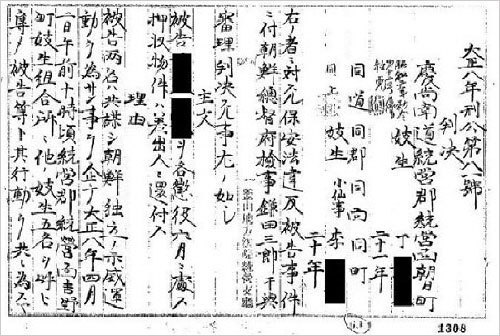 大正八年刑公第八一號
判決
慶尚南道統營郡統營面朝日町
妓生 丁
二十一年
同道同郡同面同町
同上 妓生 小仙事 李
二十年
右ノ者ニ対スル保安法違反被告事件
ニ付朝鮮總督府檢事鎌田三郎干與
審理判決スル事左ノ如シ
主文
被告 ヲ各懲役六月ニ處ス
押収物件ハ差出人ニ還付ス
理由
被告両名ハ共謀シ朝鮮独立ノ示威運
動ヲ為サン事ヲ企テ大正八年四月
二日午前十時頃統營郡統營面吉野
町妓生組合所ニ他ノ妓生五名ヲ呼ヒ
等ノ被告等ト其行動ヲ共ニ為スヘ
1308